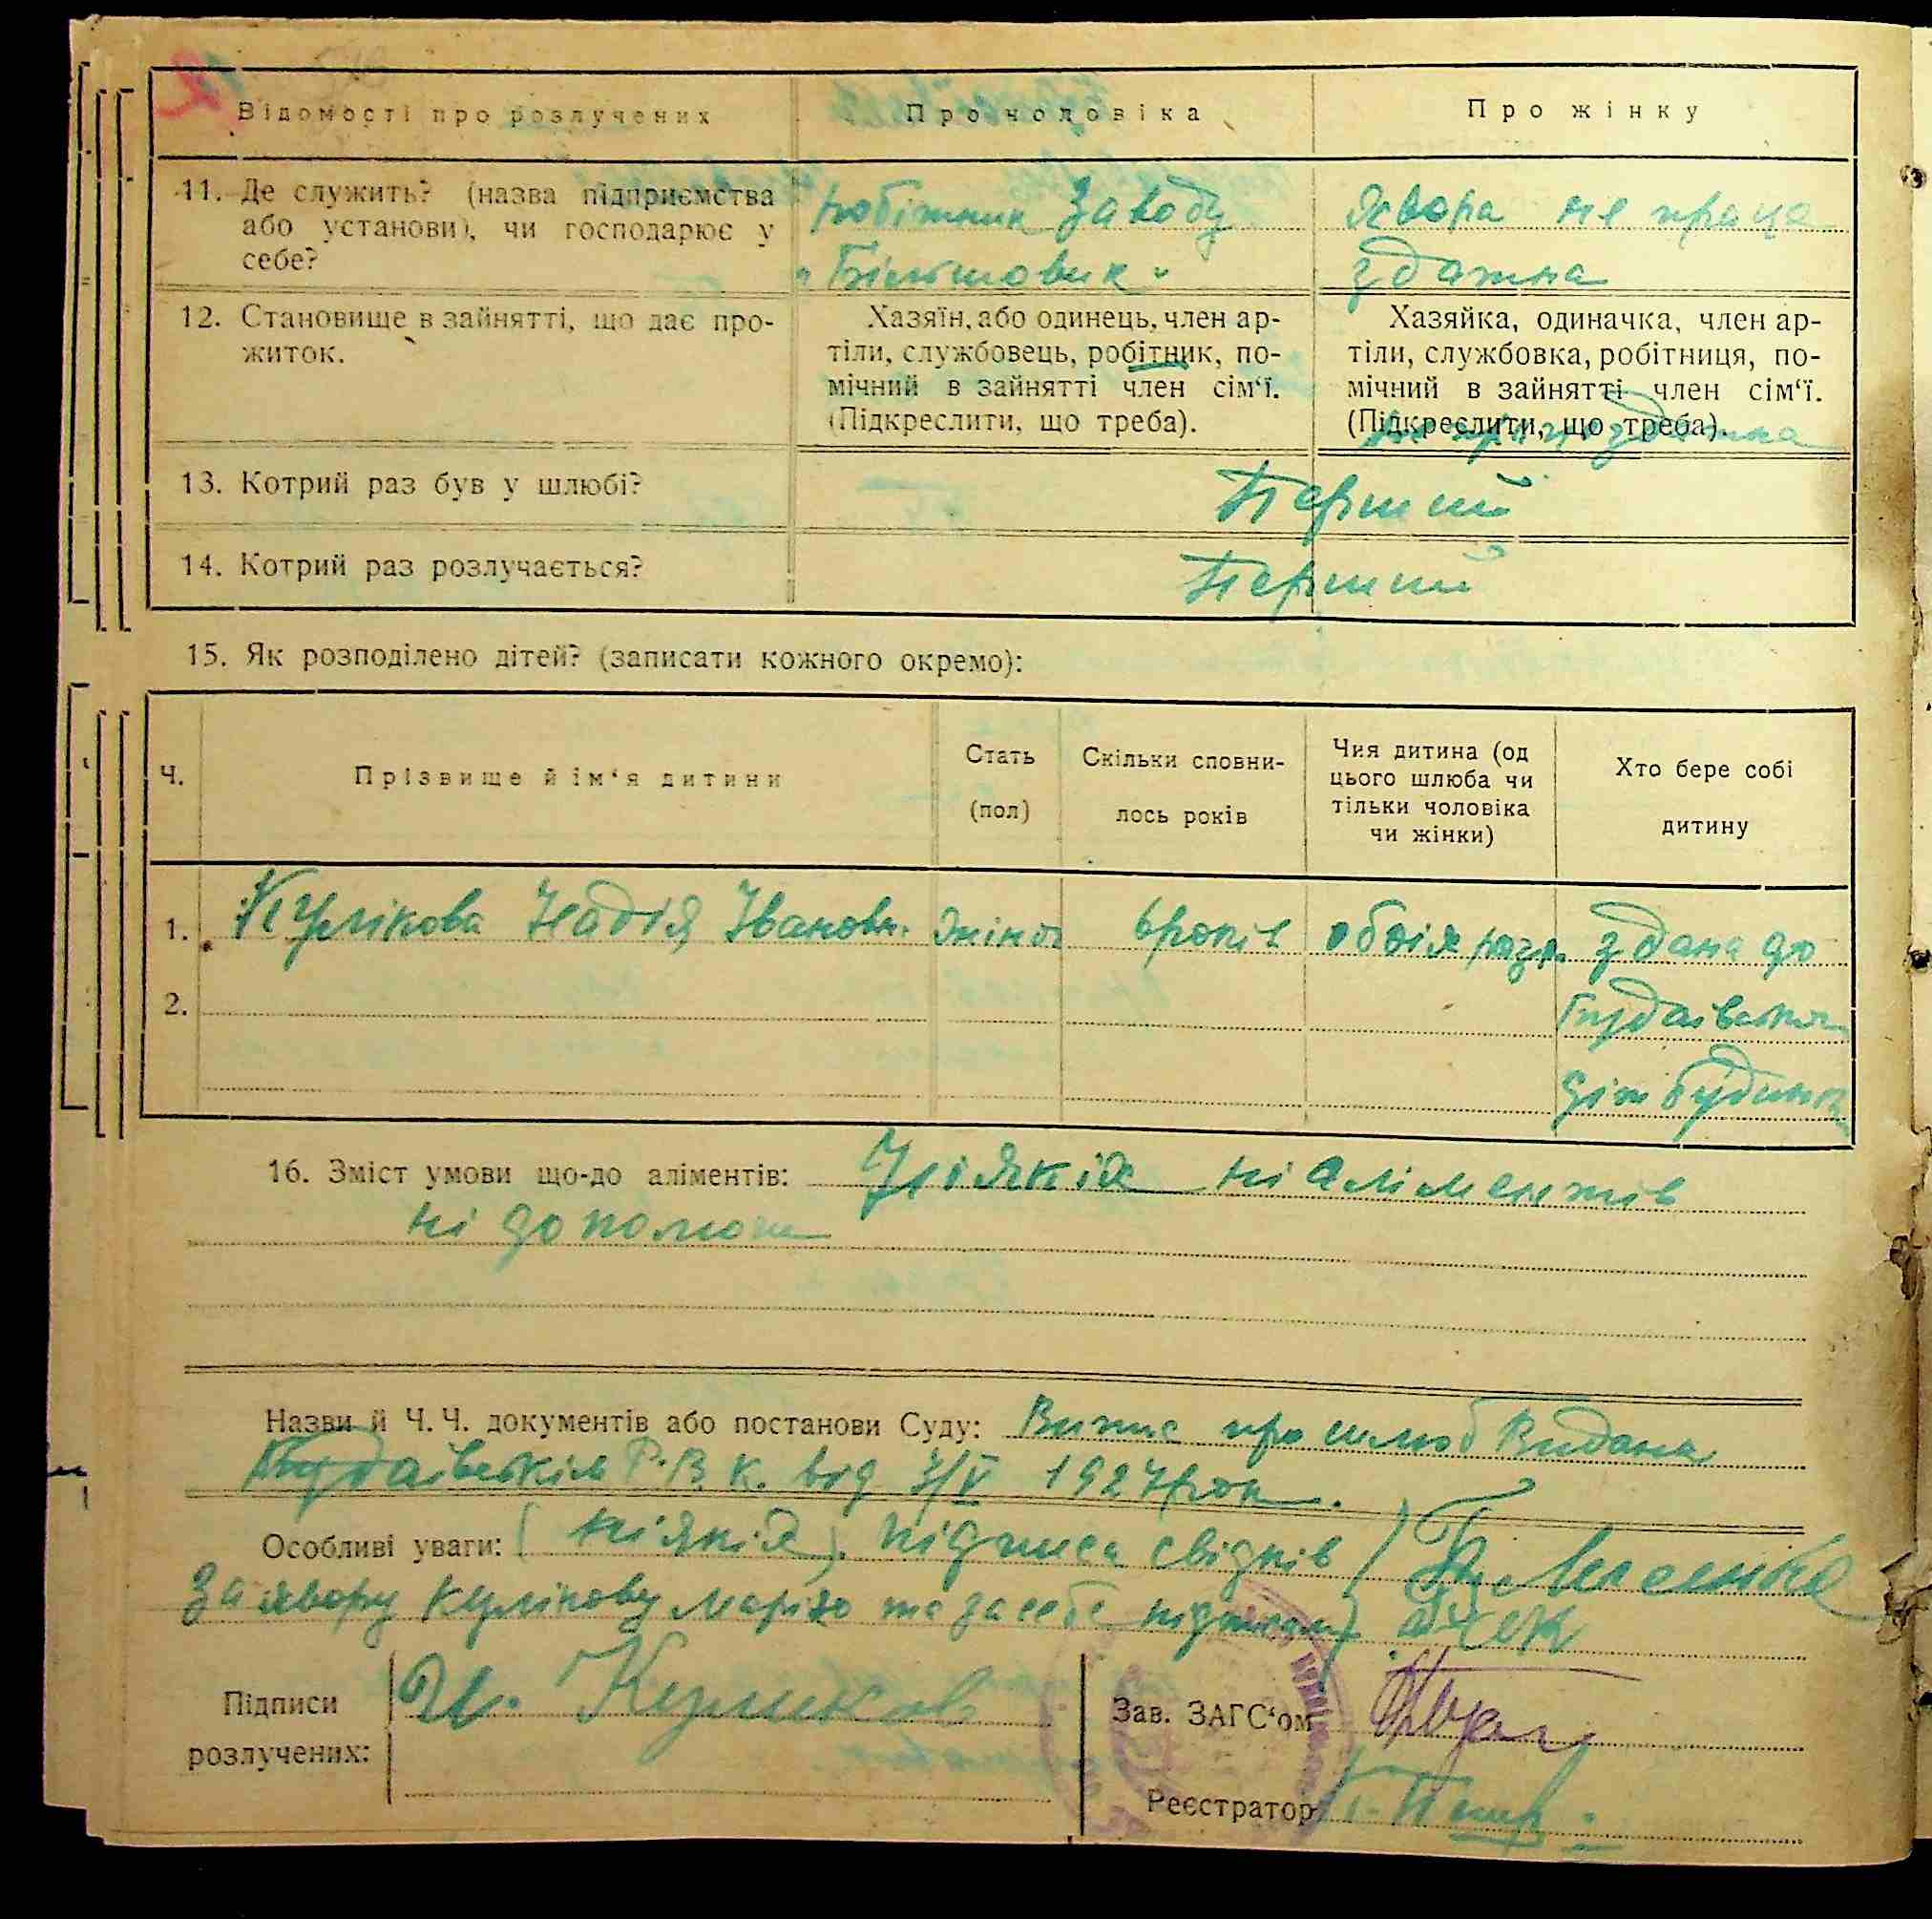 12
Відомості про розлучених
Про чоловіка
Про жінку
11. Де служить? (назва підприємства
або установи), чи господарює у
себе?
робітник заводу
„Більшовик"
Хвора не праце
здатна
12. Становище в зайнятті, що дає про-
житок.
Хазяїн, або одинець, член ар-
тіли, службовець, робітник, по-
мічний в зайнятті член сім'ї.
(Підкреслити, що треба).
Хазяйка, одиначка, член ар-
тіли, службовка, робітниця, по-
мічний в зайнятті член сім'ї.
(Підкреслити, що треба).
не працездатна
13. Котрий раз був у шлюбі?
Перший
14. Котрий раз розлучається?
Перший
15. Як розподілено дітей? (записати кожного окремо):
Ч.
Прізвище й ім'я дитини
Стать
(пол)
Скільки сповни-
лось років
Чия дитина (од
цього шлюба чи
тільки чоловіка
чи жінки)
Хто бере собі
дитину
1. Кулікова Надія Івановн. жіноч 6 років обоїх здана до
2. Будаївськ
дітбудинк
16. Зміст умови що-до аліментів: Ніякіх ні аліментів
ні допомоги
Назви й Ч. Ч. документів або постанови Суду: Випис про шлюб видана
Будаївскім Р.В.К. від 3/V 1927 рок.
Особливі уваги: (ніякіх). підписа свідків)
За хвору Кулікову Марію та за себе підписал)
Підписи
розлучених:
И. Куликов
Зав. ЗАГС'ом
Реєстратор